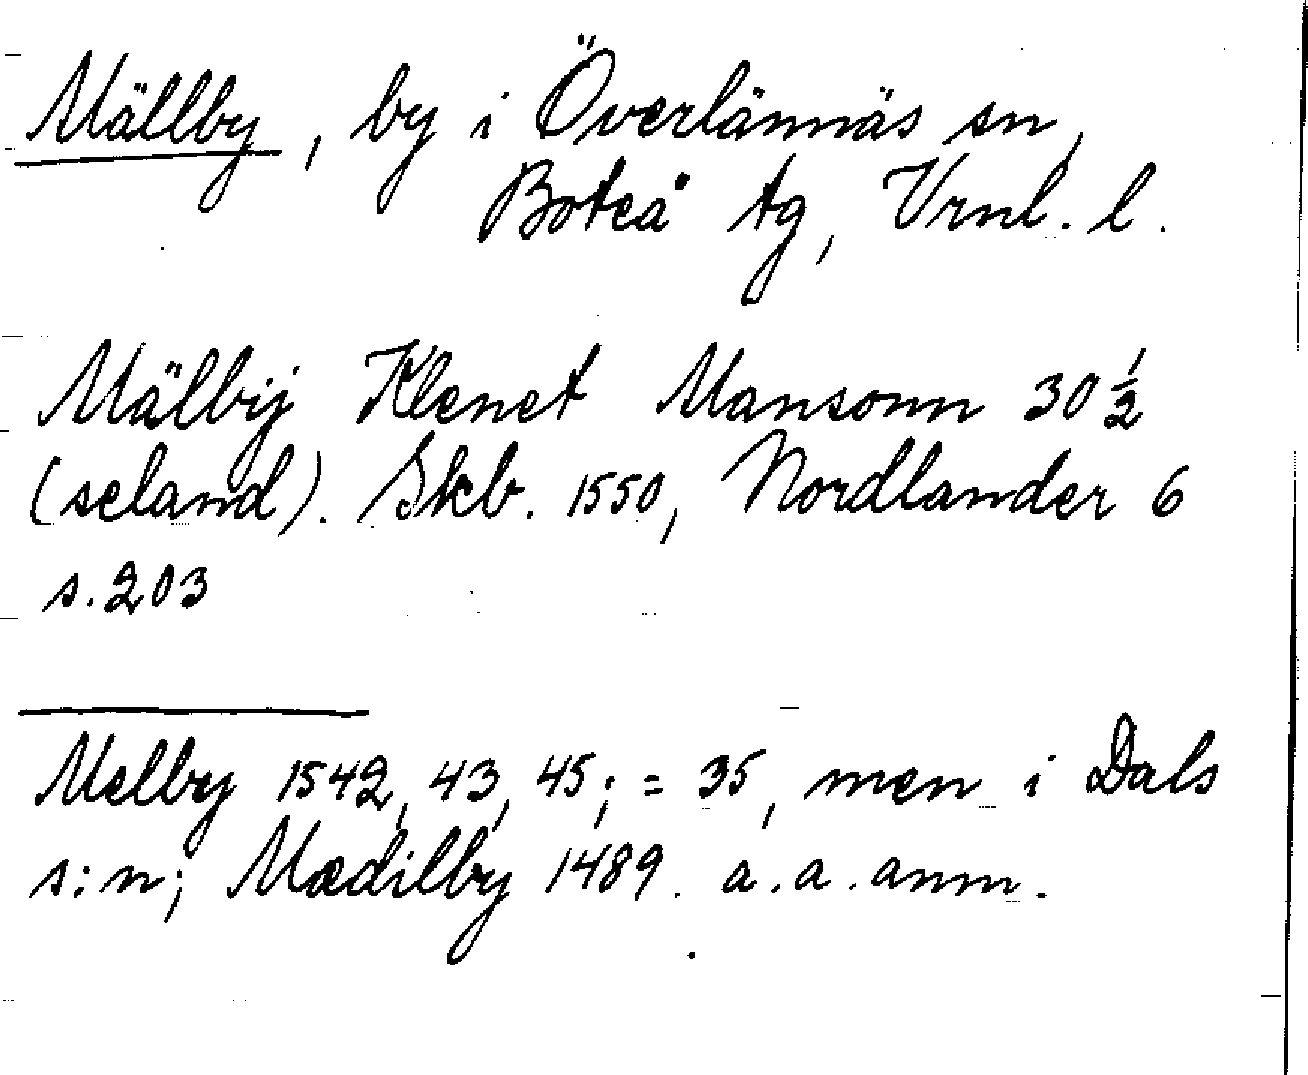 Mällby, by i Överlännäs sn,
Boteå tg, Vrnl. l.
Mälbÿ Klenet Mansonn 30 1/2
(seland). Skb. 1550, Nordlander 6
s. 203
Melby 1542, 43, 45; = 35, men i Dals
s:n; Mædilby 1489. a. a. anm.